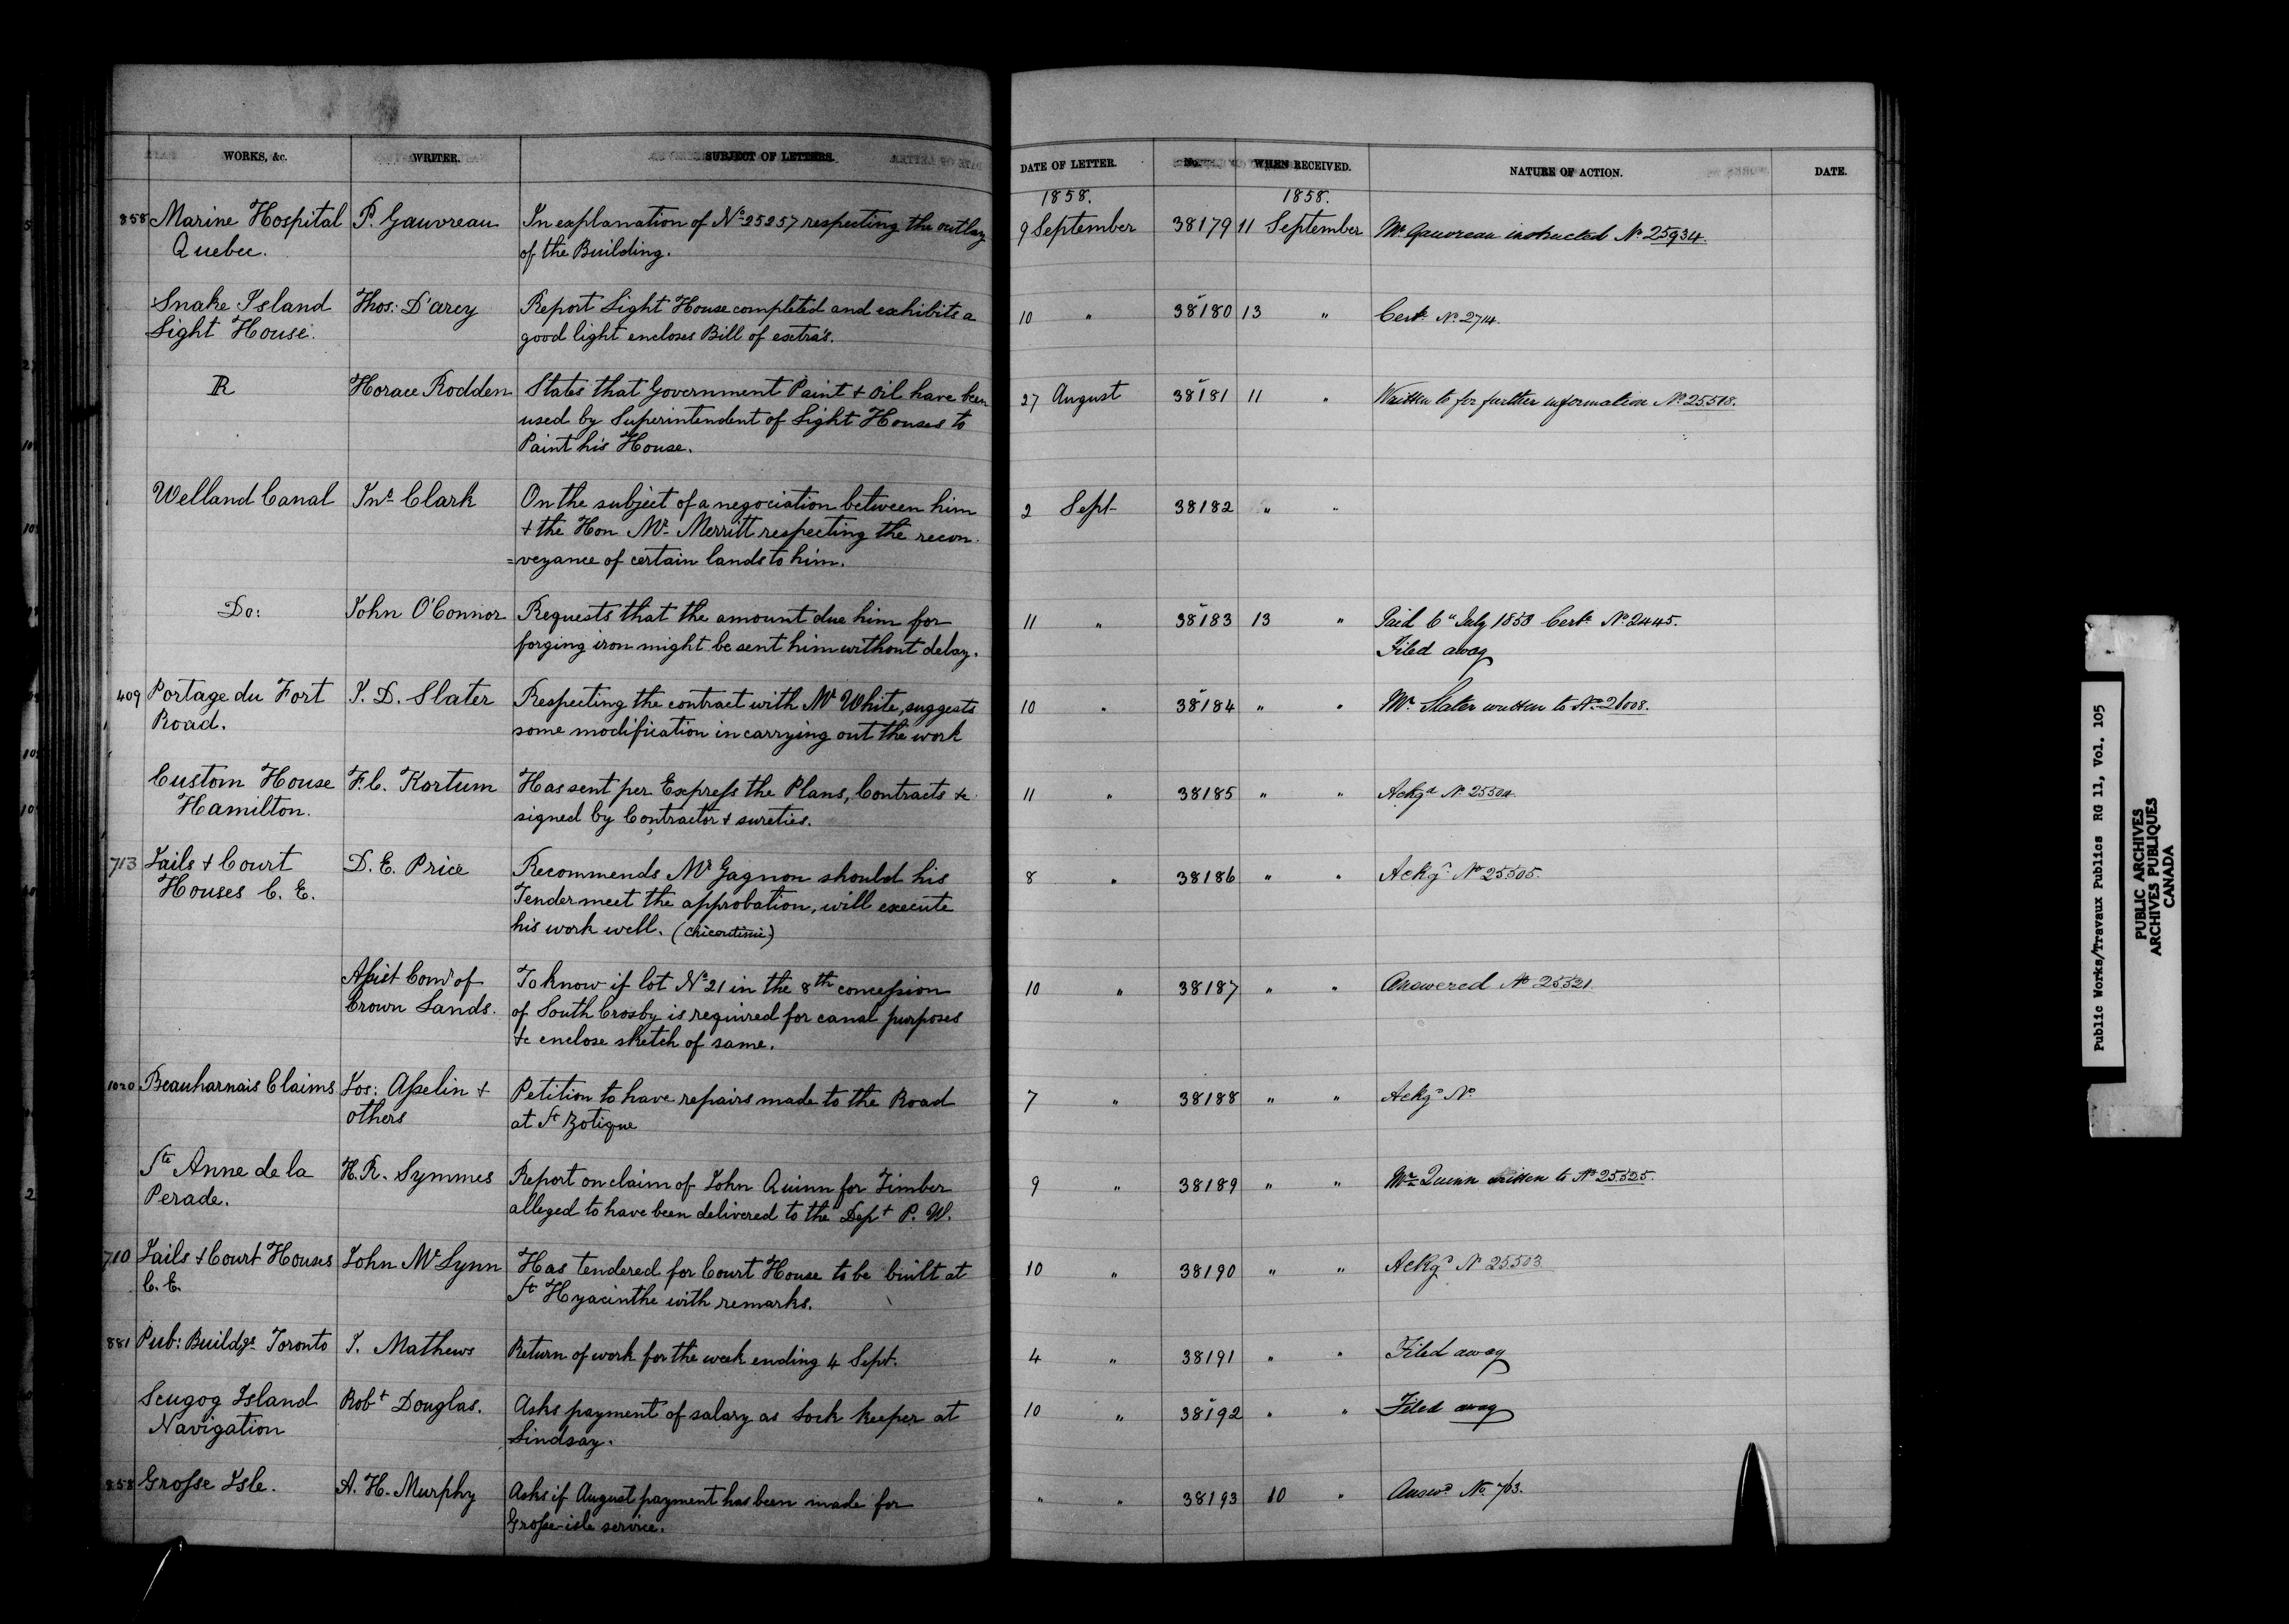 WORKS, &c. WRITER. SUBJECT OF LETTERS. DATE OF LETTER. No. WHEN RECEIVED. NATURE OF ACTION. DATE.
1858. 1858.
858 Marine Hospital P. Gauvreau In explanation of No 25257 respecting the outlay 9 September 38179 11 September Mr Gauvreau instructed No 25934.
Quebec. of the Building.
Snake Island Thos: D'arcy Report Light House completed and exhibits a 10 " 38180 13 " Certe No 2714.
Light House. good light encloses Bill of extra's.
R Horace Rodden States that Government Paint + Oil have been 27 August 38181 11 " Written to for further information No 25518.
used by Superintendent of Light Houses to
Paint his House.
Welland Canal Jno Clark On the subject of a negociation between him 2 Sept 38182 " "
+ the Hon Mr Merritt respecting the recon-
=veyance of certain lands to him.
Do: John O'Connor Requests that the amount due him for 11 " 38183 13 " Paid 6" July 1858 Certe No 2445.
forging iron might be sent him without delay. Filed away
409 Portage du Fort J. D. Slater Respecting the contract with Mr White, suggests 10 " 38184 " " Mr Slater written to No 26008.
Road. some modification in carrying out the work
Custom House F. C. Kortum Has sent per Express the Plans, Contracts &c 11 " 38185 " " Ackgd No 25504.
Hamilton. signed by Contractor + sureties.
713 Jails + Court D. E. Price Recommends Mr Gagnon should his 8 " 38186 " " Ackgd No 25505.
Houses C. E. Tender meet the approbation, will execute
his work well. (Chicoutimi)
Assist Comr of To know if lot No 21 in the 8th concession 10 " 38187 " " Answered No 25521
Crown Lands. of South Crosby is required for canal purposes
&c enclose sketch of same.
1020 Beauharnais Claims Jos: Asselin + Petition to have repairs made to the Road 7 " 38188 " " Ackgd No
others at St Zotique
Ste Anne de la H. R. Symmes Report on claim of John Quinn for Timber 9 " 38189 " " Mr Quinn written to No 25525.
Perade. alleged to have been delivered to the Dept P. W.
710 Jails + Court Houses John McLynn Has tendered for Court House to be built at 10 " 38190 " " Ackgd No 25503
C. E. St Hyacinthe with remarks.
881 Pub: Buildgs Toronto J. Mathews Return of work for the week ending 4 Sept. 4 " 38191 " " Filed away
Scugog Island Robt Douglas. Asks payment of salary as Lock keeper at 10 " 38192 " " Filed away
Navigation Lindsay.
858 Grosse Isle. A. H. Murphy Asks if August payment has been made for " " 38193 10 " Answd No 763.
Grosse-isle service.
Public Works/Travaux Publics RG 11, Vol. 105
PUBLIC ARCHIVES
ARCHIVES PUBLIQUES
CANADA